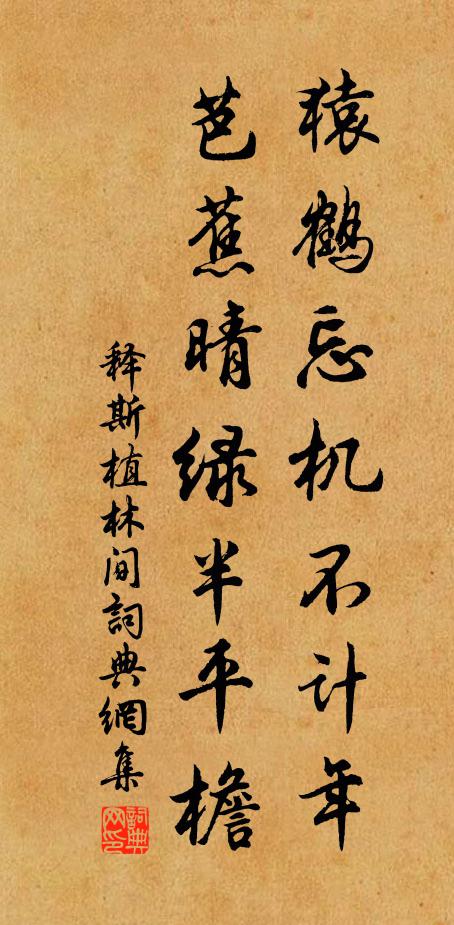 猿鹤忘机不计年
芭蕉晴绿半平檐
释斯植林间詞典網集
詞典网印